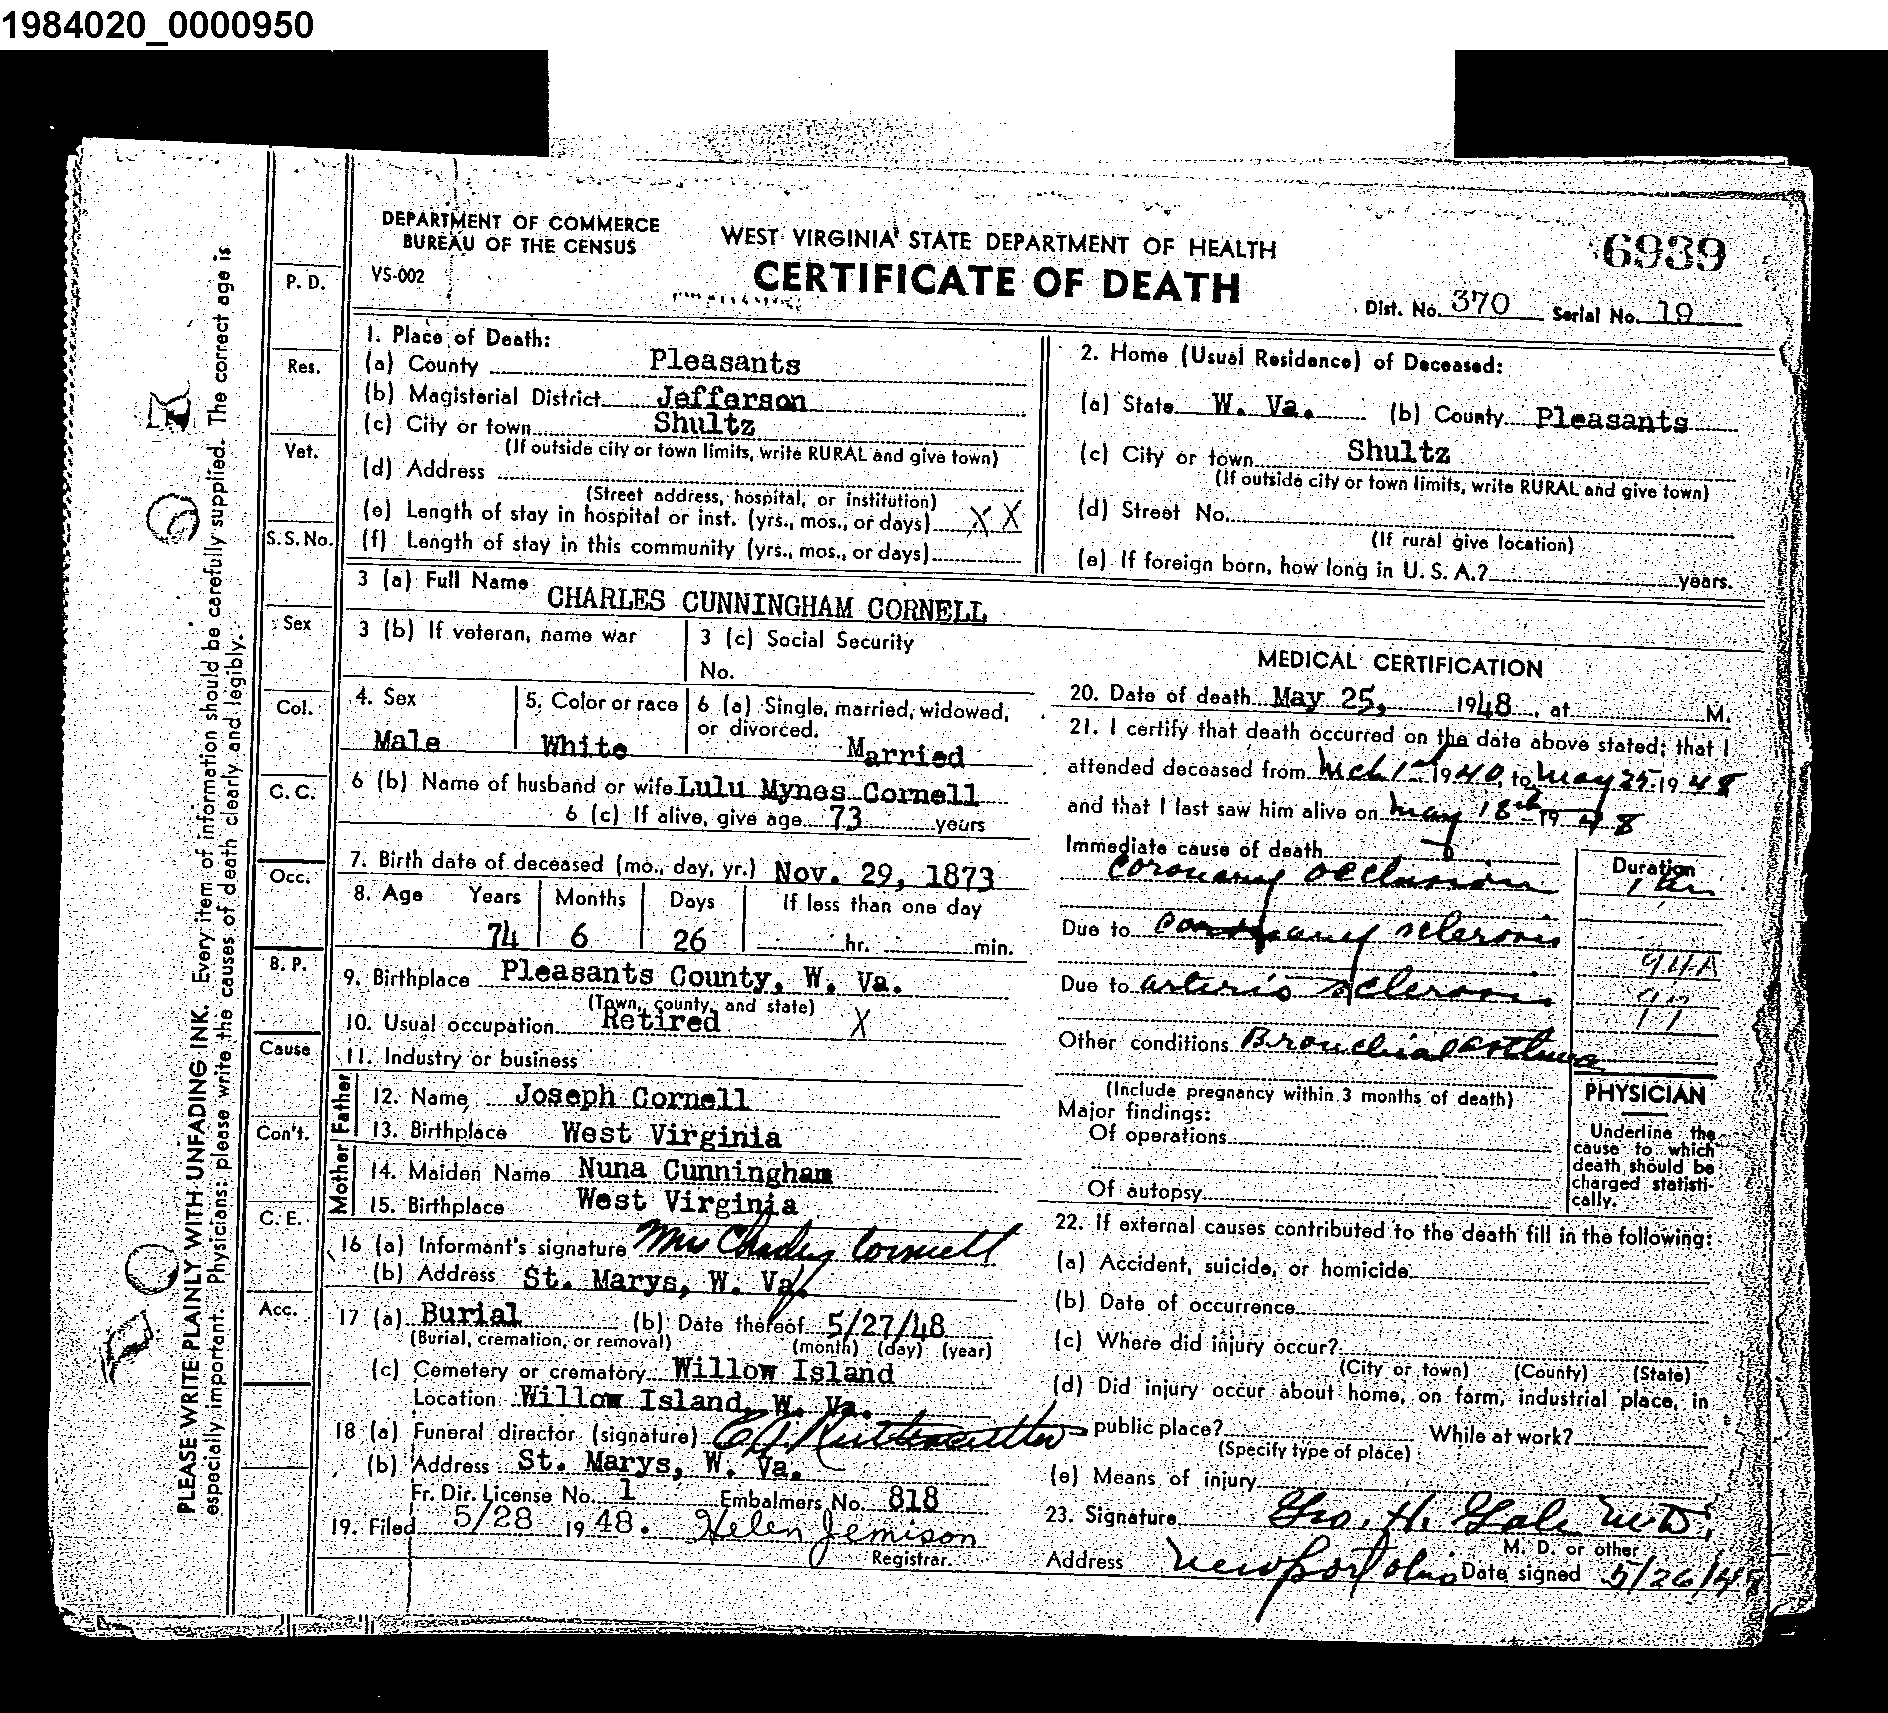 1984020_0000950
DEPARTMENT OF COMMERCE
BUREAU OF THE CENSUS
VS-002
WEST VIRGINIA STATE DEPARTMENT OF HEALTH
CERTIFICATE OF DEATH
6939
Dist. No. 370 Serial No. 19
1. Place of Death:
(a) County Pleasants
(b) Magisterial District Jefferson
(c) City or town Shultz
(If outside city or town limits, write RURAL and give town)
(d) Address
(Street address, hospital, or institution)
(e) Length of stay in hospital or inst. (yrs., mos., or days) XX
(f) Length of stay in this community (yrs., mos., or days)
2. Home (Usual Residence) of Deceased:
(a) State W. Va. (b) County Pleasants
(c) City or town Shultz
(If outside city or town limits, write RURAL and give town)
(d) Street No.
(If rural give location)
(e) If foreign born, how long in U. S. A.? years.
3 (a) Full Name CHARLES CUNNINGHAM CORNELL
3 (b) If veteran, name war
3 (c) Social Security
No.
4. Sex
Male
5. Color or race
White
6 (a) Single, married, widowed,
or divorced.
Married
6 (b) Name of husband or wife Lulu Mynes Cornell
6 (c) If alive, give age 73 years
7. Birth date of deceased (mo., day, yr.) Nov. 29, 1873
8. Age Years Months Days If less than one day
74 6 26 hr. min.
9. Birthplace Pleasants County, W. Va.
(Town, county, and state)
10. Usual occupation Retired X
11. Industry or business
Father
12. Name Joseph Cornell
13. Birthplace West Virginia
Mother
14. Maiden Name Nuna Cunningham
15. Birthplace West Virginia
16 (a) Informant's signature Mrs Charley Cornell
(b) Address St. Marys, W. Va.
17 (a) Burial (b) Date thereof 5/27/48
(Burial, cremation, or removal) (month) (day) (year)
(c) Cemetery or crematory Willow Island
Location Willow Island, W. Va.
18 (a) Funeral director (signature)
(b) Address St. Marys, W. Va.
Fr. Dir. License No. 1 Embalmers No. 818
19. Filed 5/28 1948. Helen Jemison
Registrar.
MEDICAL CERTIFICATION
20. Date of death May 25, 1948, at M.
21. I certify that death occurred on the date above stated; that I
attended deceased from Mch 1st 1940, to May 25 1948
and that I last saw him alive on May 18th 1948
Immediate cause of death
coronary occlusion
Duration
Due to coronary sclerosis
94A
Due to arterio sclerosis
97
Other conditions Bronchial asthma
(Include pregnancy within 3 months of death)
Major findings:
Of operations
Of autopsy
PHYSICIAN
Underline the
cause to which
death should be
charged statisti-
cally.
22. If external causes contributed to the death fill in the following:
(a) Accident, suicide, or homicide
(b) Date of occurrence
(c) Where did injury occur?
(City or town) (County) (State)
(d) Did injury occur about home, on farm, industrial place, in
public place? While at work?
(Specify type of place)
(e) Means of injury
23. Signature Geo. H. Gale M.D.
M. D. or other
Address Newport Ohio Date signed 5/26/48
P. D.
Res.
Vet.
S. S. No.
Sex
Col.
C. C.
Occ.
B. P.
Cause
Con't.
C. E.
Acc.
PLEASE WRITE PLAINLY WITH UNFADING INK. Every item of information should be carefully supplied. The correct age is
especially important. Physicians: please write the causes of death clearly and legibly.